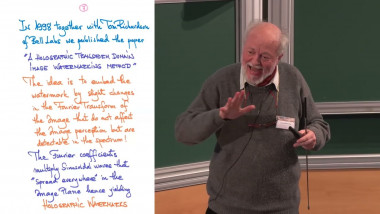 In 1998 together with Tom Richardson
of Bell Labs we published the paper
"A HOLOGRAPHIC TRANSFORM DOMAIN
IMAGE WATERMARKING METHOD"
The idea is to embed the
watermark by slight changes
in the Fourier Transform of
the Image that do not affect
the Image perception but are
detectable in the spectrum!
The Fourier coefficients
multiply Sinusoidal waves that
"spread everywhere" in the
Image Plane hence yielding
HOLOGRAPHIC WATERMARKS